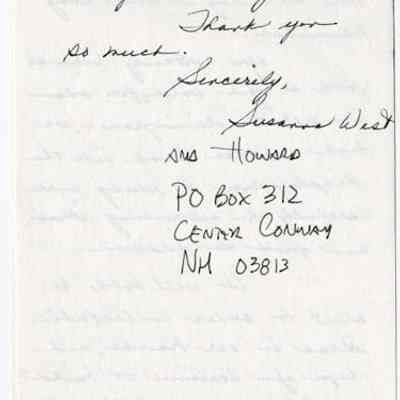 Thank you
so much.
Sincerely,
Susanna West
AND HOWARD
PO BOX 312
CENTER CONWAY
NH 03813